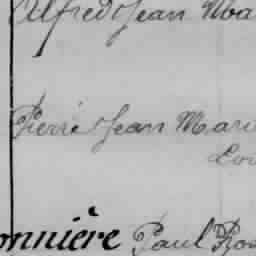 Alfred Jean
Pierre Jean Marie
onnière Paul